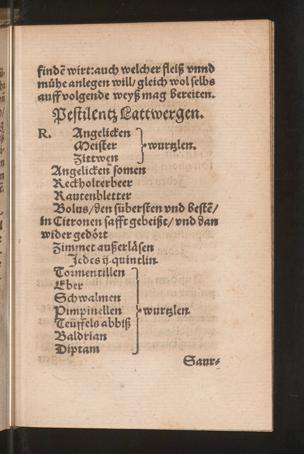 findē wirt: auch welcher fleiß vnnd
mühe anlegen will/ gleich wol selbs
auff volgende weyß mag bereiten.
Pestilentz Lattwergen.
R. Angelicken
Meister } wurtzlen.
Zittwen
Angelicken somen
Reckholterbeer
Rautenbletter
Bolus/ den sübersten vnd bestē/
in Citronen safft gebeißt/ vnd dan
wider gedört
Zimmet außerläsen
Jedes ij. quintlin.
Tormentillen
Eber
Schwalmen
Pimpinellen } wurtzlen.
Teüffels abbiß
Baldrian
Diptam
Saur-